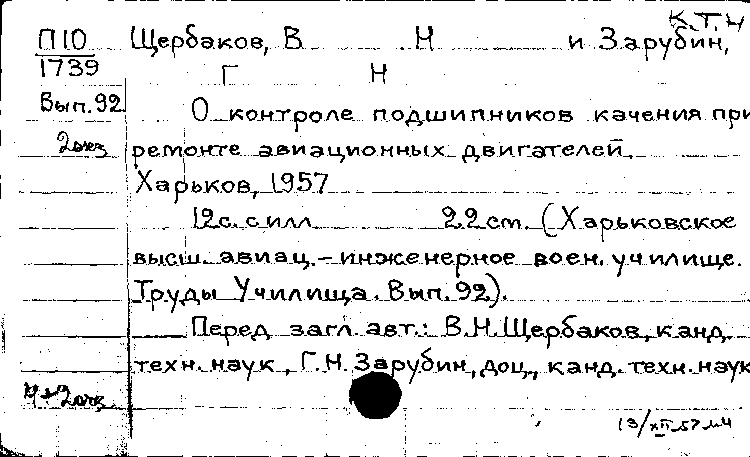 К.Т.Н
П10 Щербаков, В Н и Зарубин,
1739 Г Н
Вып. 92 О контроле подшипников качения при
2 экз ремонте авиационных двигателей.
Харьков, 1957
12с. с илл 22 см. (Харьковское
высш. авиац.-инженерное воен. училище.
Труды Училища. Вып. 92).
Перед загл. авт.: В.Н. Щербаков, канд.
техн. наук, Г.Н. Зарубин, доц., канд. техн. наук
13/XII-57